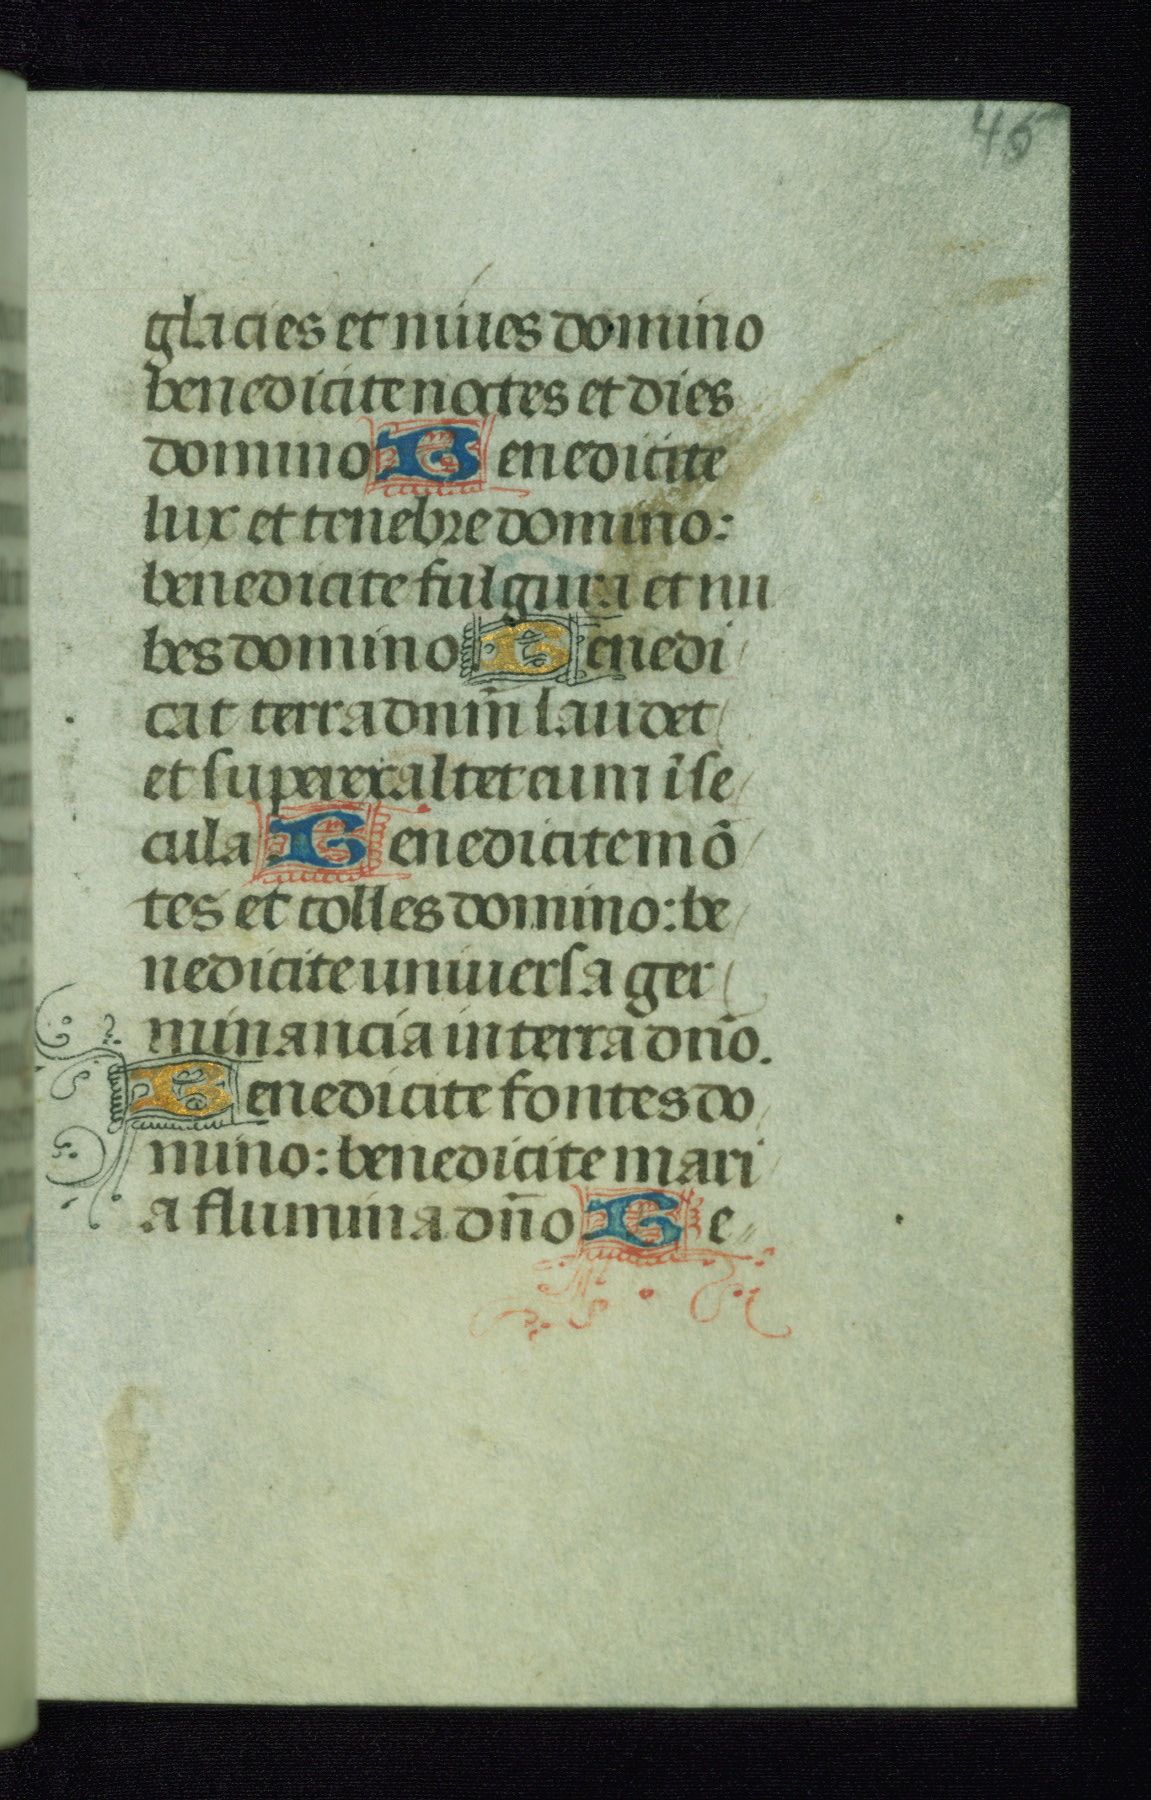 46
glacies et niues domino
benedicite noctes et dies
domino Benedicite
lux et tenebre domino:
benedicite fulgura et nu
bes domino Benedi
cat terra dnm̄ laudet
et superexaltet eum ī se
cula Benedicite mō
tes et colles domino: be
nedicite uniuersa ger
minancia in terra dn̄o.
Benedicite fontes do
mino: benedicite mari
a flumina dn̄o Be